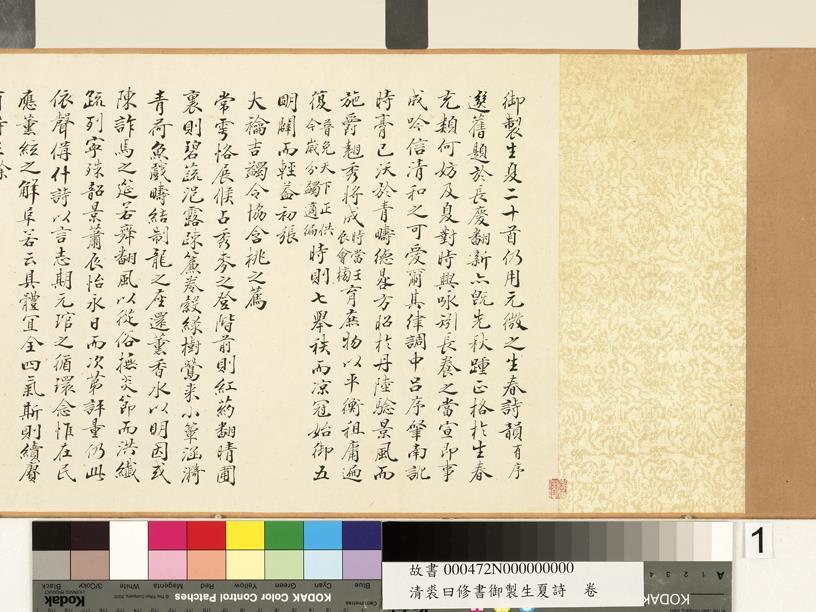 御製生夏二十首仍用元微之生春詩韻有序
選舊題於長慶翻新亦既先秋踵正格於生春
充類何妨及夏對時興咏別長養之當宣即事
成吟信清和之可愛爾其律調中呂序肇南訛
時膏已沃於青疇德晷方昭於丹陸驗景風而
施爵翹秀將成時當壬辰會榜育庶物以平衡祖庸遍
復普免天下正供今歲分蠲適徧時則七舉秩而涼冠始御五
明闢而輕箑初張
大禬吉蠲令協含桃之薦
常雩恪展候占秀麥之登階前則紅葯翻晴圃
裏則碧蔬浥露疎簾卷縠綠樹鶯來小簟漪
青荷魚戲疇結制龍之座還薰香水以明因或
陳詐馬之筵若舞翻風以從俗撫炎節而洪纖
疏列寧殊韶景蕭辰怡永日而次第評量仍此
依聲傅什詩以言志期元琯之循環念惟在民
應薰絃之解阜若云具體宜全四氣斯則續賡
Blue
Cyan
Green
Yellow
Red
Magenta
White
3/Color
Black
Kodak
KODAK Color Control Patches
KODAK
A 1 2 3 4
1
故書 000472N000000000
清裘曰修書御製生夏詩 卷